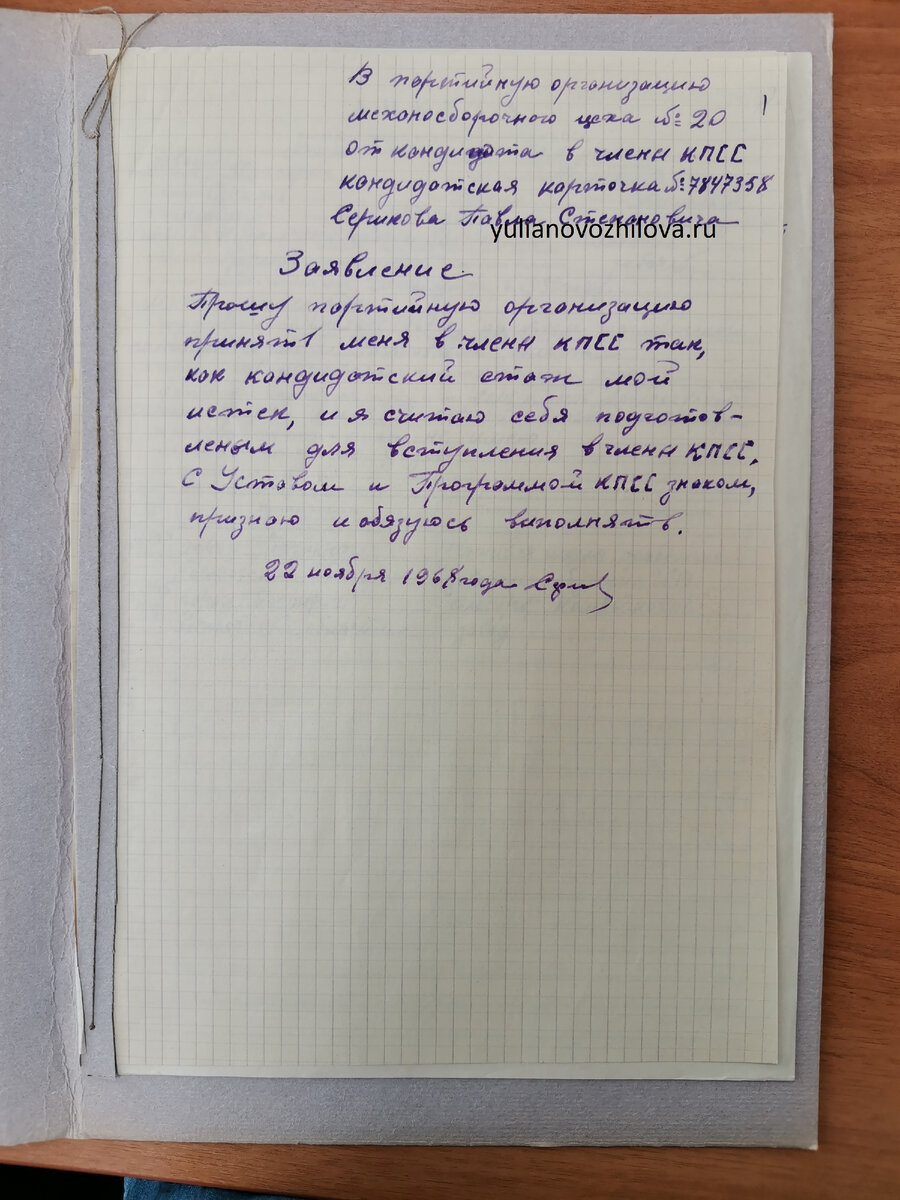 В партийную организацию
1
механосборочного цеха № 20
от кандидата в члены КПСС
кандидатская карточка № 7847358
Серикова Павла Степановича
yulianovozhilova.ru
Заявление.
Прошу партийную организацию
принять меня в члены КПСС так,
как кандидатский стаж мой
истек, и я считаю себя подготов-
леным для вступления в члены КПСС.
С Уставом и Программой КПСС знаком,
признаю и обязуюсь выполнять.
22 ноября 1968 года